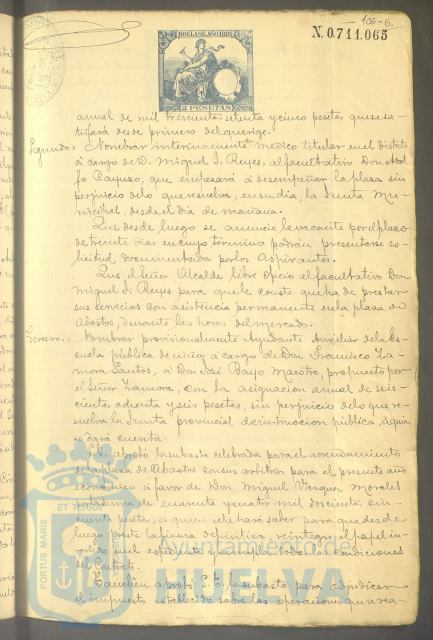 106-6.
N.0.711.065
10ª CLASE. AÑO 1889
2 PESETAS
anual de mil trescientas setenta y cinco pesetas que se sa-
tisfará desde primero del que rige.
Segundo: Nombrar interinamente médico titular en el distrito
á cargo de D. Miguel J. Reyes, al facultativo Don Adol-
fo que empesará á desempeñar la plaza sin
perjuicio de lo que resuelva, en su dia, la Junta Mu-
nicipal, desde el dia de mañana.
Que desde luego se anuncie la vacante por el plazo
de treinta dias en cuyo término podrán presentarse so-
licitud documentada por los aspirantes.
Que el Señor Alcalde libre oficio al facultativo Don
Miguel J. Reyes para que le conste que ha de prestar
sus servicios con asistencia permanente en la plaza de
Abastos, durante las horas del mercado.
Tercero: Nombrar provisionalmente Ayudante Auxiliar de la Es-
cuela pública de niños á cargo de Don Francisco Za-
mora Santos, á Don José Bayo Maestre, propuesto por
el Señor Zamora, con la asignacion anual de seis-
cientas ochenta y seis pesetas, sin perjuicio de lo que re-
suelva la Junta provincial de instruccion pública, á quien
se dará cuenta.
S.E. aprobó la subasta celebrada para el arrendamiento
de la plaza de Abastos con sus arbitrios para el presente año
económico á favor de Don Miguel Vazquez Morales
de cuarenta y cuatro mil doscientas cin-
cuenta pesetas, á quien se le hará saber para que desde
luego preste la fianza definitiva, reintegre el papel in-
vertido en el espediente y cumpla las demás condiciones
del contrato.
Tambien aprobó S.E. la subasta para adjudicar
el impuesto establecido sobre las operaciones que se rea-
PORTUS MARIS ET TERRAE
Ayuntamiento de
HUELVA